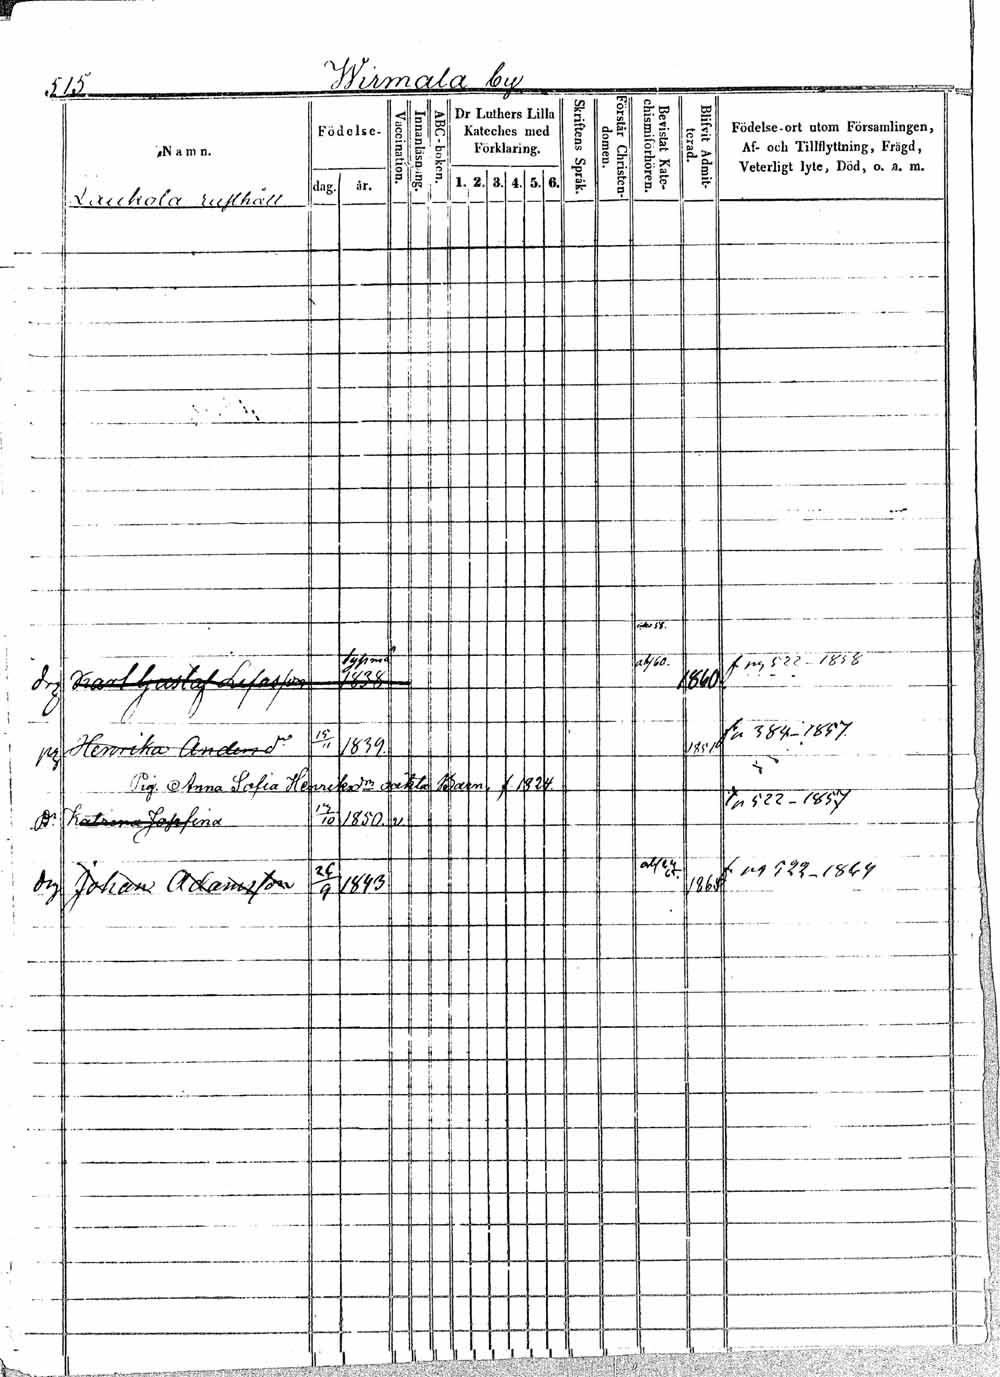 515
Wirmala by
Namn.
Födelse-
dag.
år.
Vaccination.
Innanläsning.
ABC-boken.
Dr Luthers Lilla
Kateches med
Förklaring.
1. 2. 3. 4. 5. 6.
Skriftens Språk.
Förstår Christen-
domen.
Bevistat Kate-
chismiförhören.
Blifvit Admit-
terad.
Födelse-ort utom Församlingen,
Af- och Tillflyttning, Frägd,
Veterligt lyte, Död, o. a. m.
Laukola rusthåll
drg Karl Gustaf 1838 1860 f n 522 - 1858
pg Henrika Andersd:r 15/11 1839. f n 384 - 1857.
Pig. Anna Sofia Henriksd:r oäkta Barn, f 1824
Katrina Josefina 1850. v f n 522 - 1857
drg Johan Adamsson 26/9 1843 f n 522 - 1864